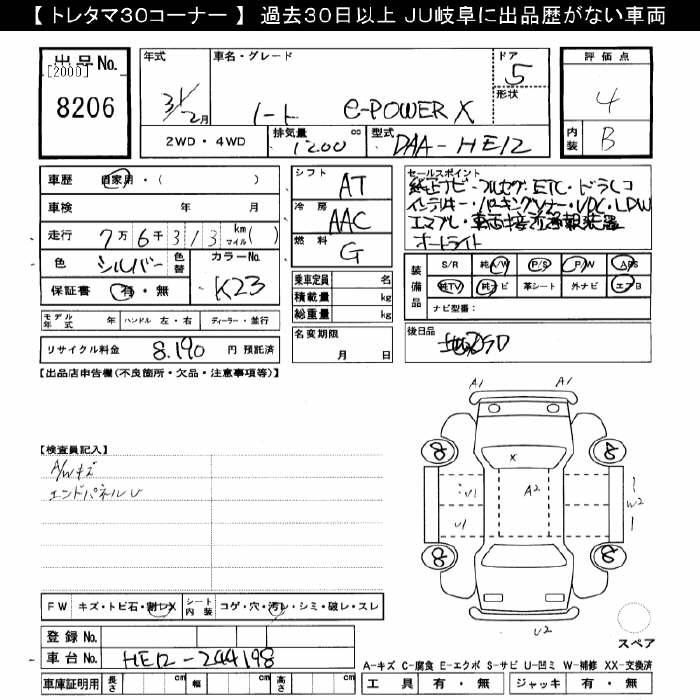 【 トレタマ30コーナー 】 過去30日以上 JU岐阜に出品歴がない車両
出品No.
[2000]
8206
年式
31/2月
車名・グレード
ノート e-POWER X
ドア
5
形状
評価点
4
内装
B
2WD・4WD
排気量
1200 cc
型式
DAA-HE12
車歴 自家用・( )
車検 年 月
走行 7万6千313 km マイル( )
色 シルバー 色替
カラーNo.
K23
保証書 有・無
シフト
AT
冷房
AAC
燃料
G
セールスポイント
純正ナビ・フルセグ・ETC・ドラレコ
インテリキー・パーキングソナー・VDC・LDW
エマブレ・車両接近通報装置
オートライト
装備品
S/R 純A/W P/S P/W ABS
純TV 純ナビ 革シート 外ナビ エアB
ナビ型番:
乗車定員 名
積載量 kg
総重量 kg
モデル年式 年 ハンドル 左・右 ディーラー・並行
リサイクル料金 8.190 円 預託済
名変期限
月 日
後日品
【出品店申告欄(不良箇所・欠品・注意事項等)】
【検査員記入】
A/Wキズ
エンドパネルU
A1 A1
8 8
X
U1 A2 W2
U1
8 8
U2
スペア
FW キズ・トビ石・割レX シート内装 コゲ・穴・汚レ・シミ・破レ・スレ
登録No.
車台No. HE12-244198
A-キズ C-腐食 E-エクボ S-サビ U-凹ミ W-補修 XX-交換済
車庫証明用 長さ cm 幅 cm 高さ cm
工具 有・無 ジャッキ 有・無